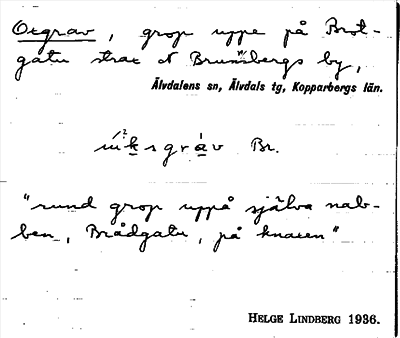 Oxgrav, grop uppe på Brot-
gatu strax N Brunnbergs by,
Älvdalens sn, Älvdals tg, Kopparbergs län.
Br.
"rund grop uppå själva nab-
ben, Brådgatu, på knaten"
HELGE LINDBERG 1936.